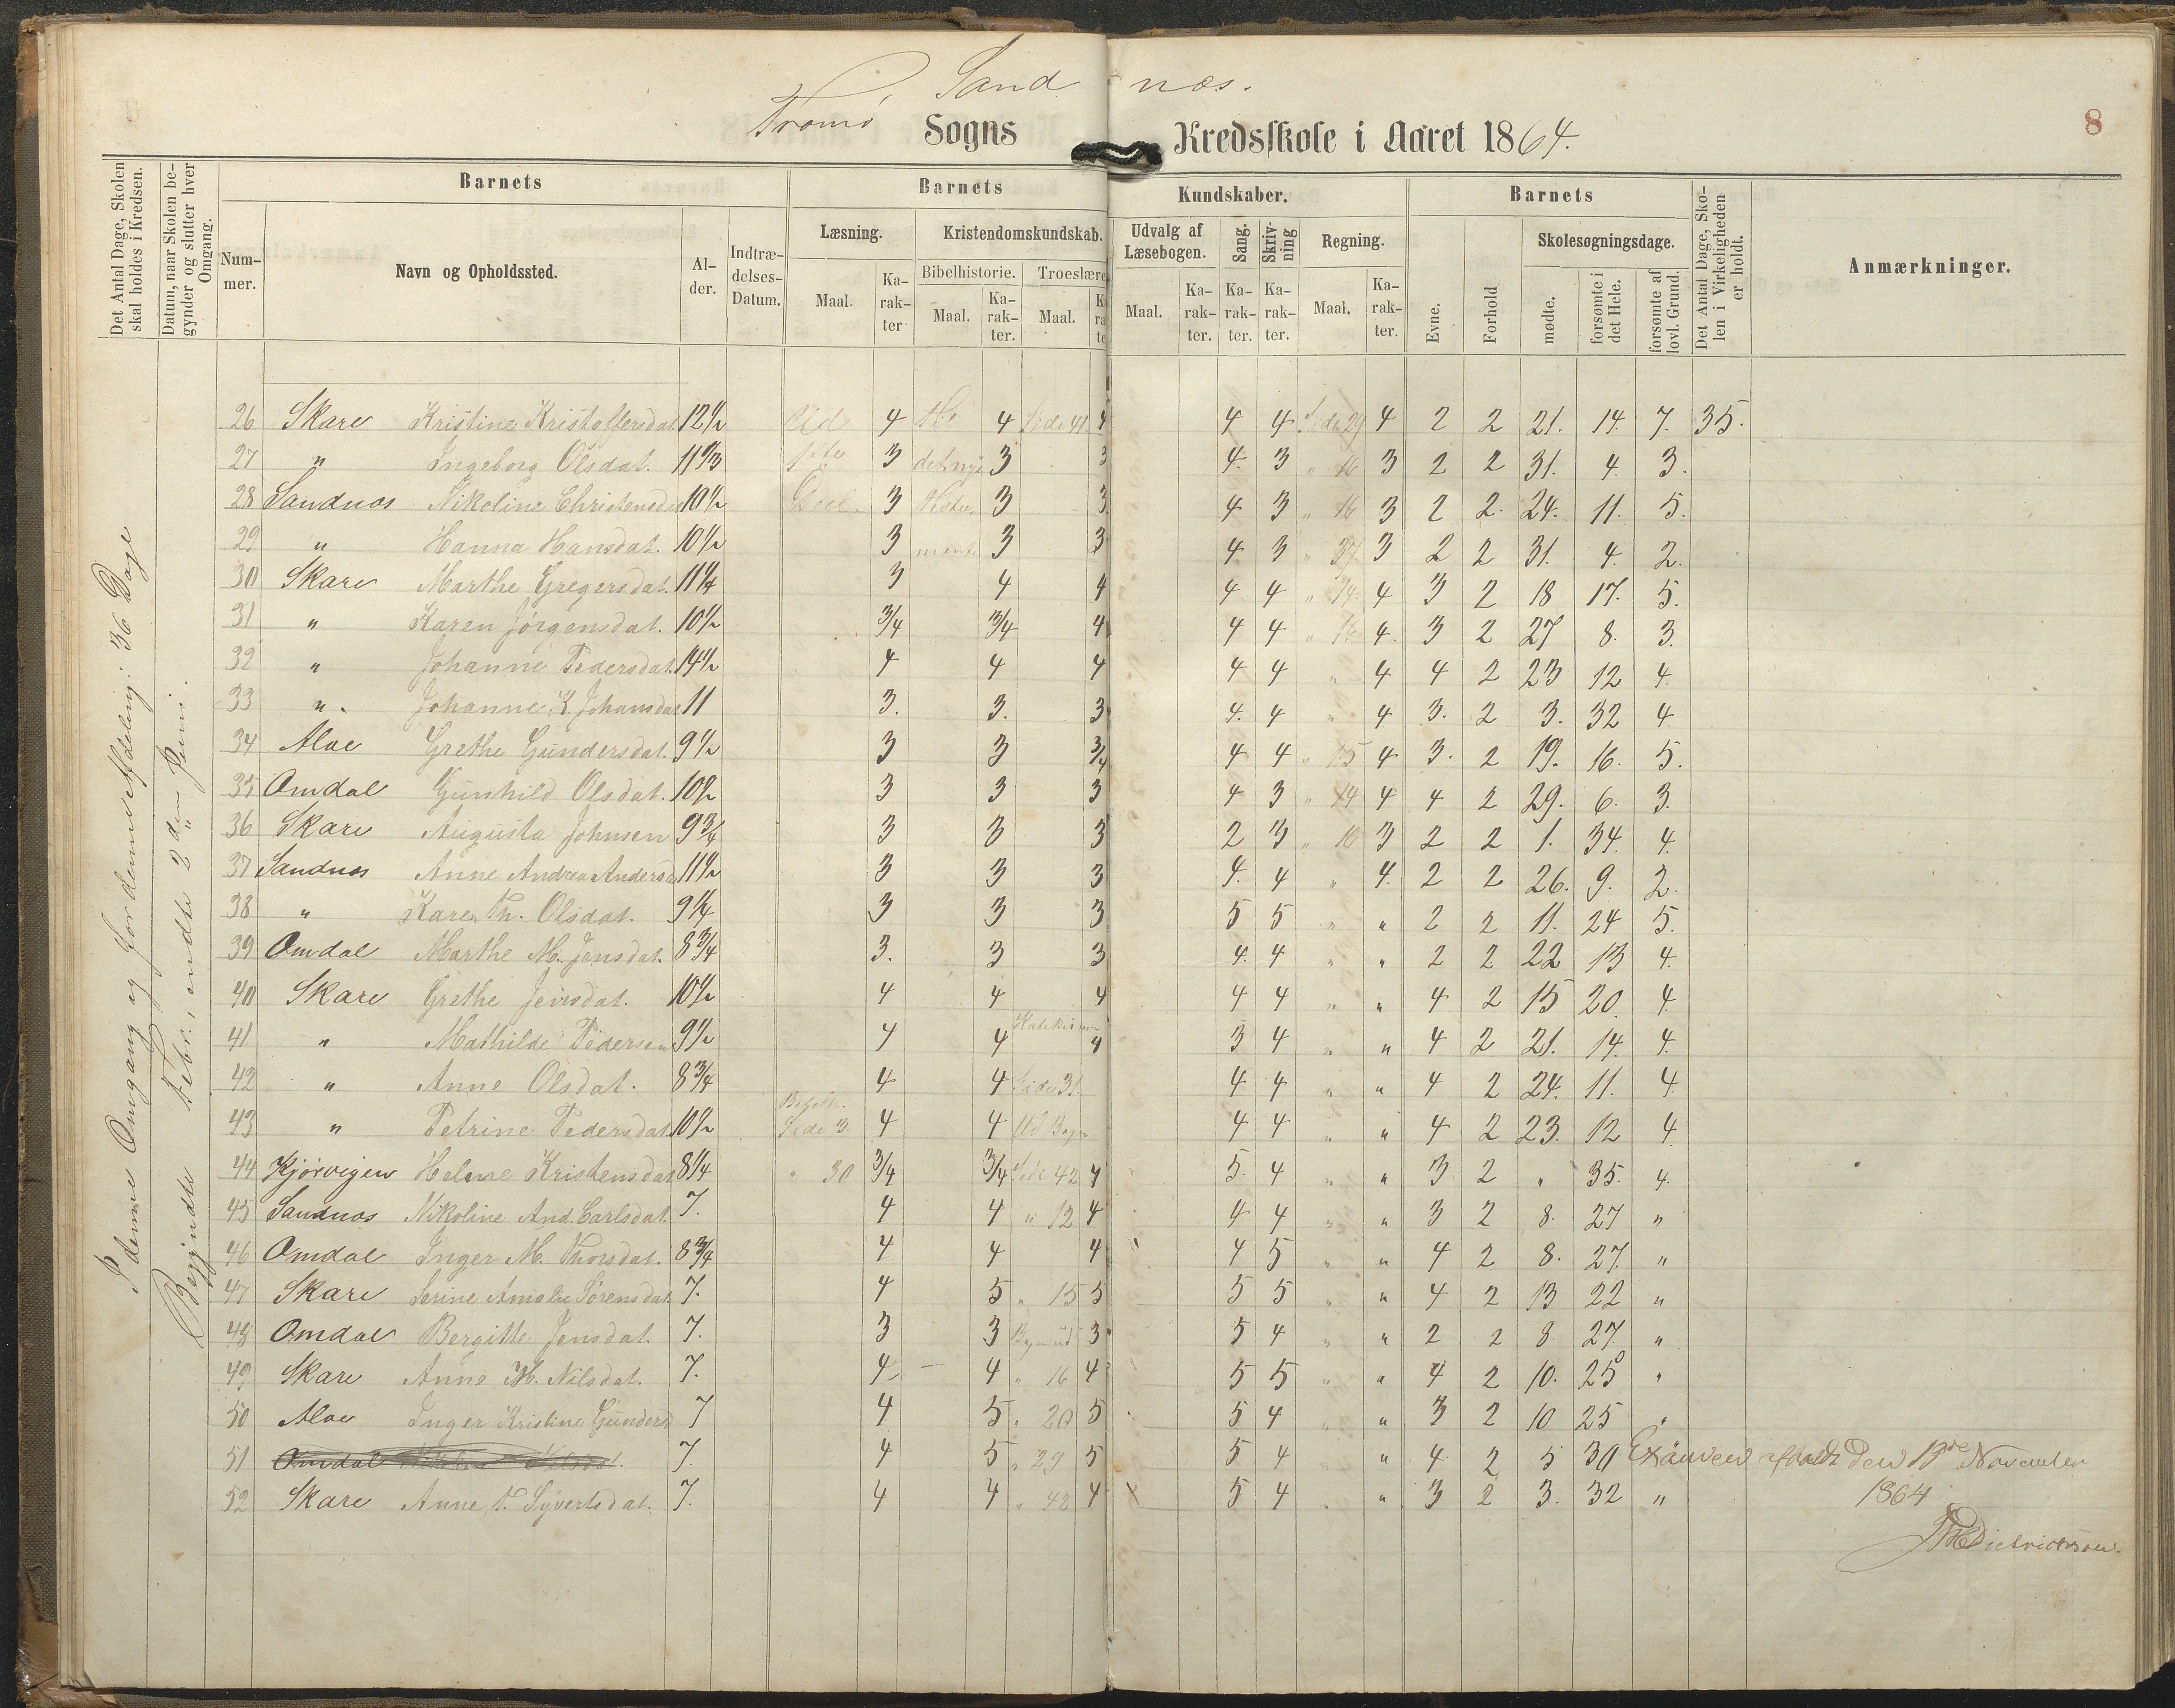 Sandnæs.
Tromø Sogns Kredsskole i Aaret 1864.
8
Det Antal Dage, Skolen skal holdes i Kredsen.
Datum, naar Skolen begynder og slutter hver Omgang.
Barnets
Barnets
Kundskaber.
Barnets
Det Antal Dage, Skolen i Virkeligheden er holdt.
Anmærkninger.
Nummer.
Navn og Opholdssted.
Alder.
Indtrædelses-Datum.
Læsning.
Kristendomskundskab.
Udvalg af Læsebogen.
Sang.
Skrivning
Regning.
Evne.
Forhold
Skolesøgningsdage.
Bibelhistorie.
Troeslære
Maal.
Karakter
Maal.
Karakter.
Maal.
Maal.
Karakter.
Karakter.
Karakter.
Maal.
Karakter.
mødte.
forsømte i det Hele.
forsømte af lovl. Grund.
I denne Omgang og for denne Afdeling: 36 Dage
Begyndte Febr., endte 2den Juni.
26 Skare Kristine Kristoffersdat. 12½ Ud 4 4 Side 41 4 4 4 Side 29 4 2 2 21. 14. 7. 35.
27 " Ingeborg Olsdat. 11⅓ 3 det nye 3 3 4. 3 " 16 3 2 2 31. 4. 3.
28 Sandnæs Nikoline Christensda 10½ 3 3 3. 4 3 " 16 3 2 2. 24. 11. 5.
29 " Hanna Hansdat. 10½ 3 3 3 4 3 " 37. 3 2 2 31. 4. 2.
30 Skare Marthe Gregersdat. 11¼ 3 4 4 4 4 " 14. 4 3 2 18 17. 5.
31 " Karen Jørgensdat. 10½ 3/4 3/4 4 4 4 " 4. 3 2 27 8. 3.
32 " Johanne Pedersdat. 14½ 4 4 4 4 4 " 4 4 2 23 12 4.
33 " Johanne K. Johansdat 11 3. 3. 3 4. 4 " 4 3. 2 3. 32 4
34 Aloe Grethe Gundersdat. 9½ 3 3 3/4 4 4 " 15 4 3. 2 19. 16. 5.
35 Omdal Gunhild Olsdat. 10½ 3 3 3 4 3 " 14 4 4 2 29. 6. 3.
36 Skare Augusta Johnsen 9¾ 3 3 3 2 3 " 16 3 2 2 1. 34. 4.
37 Sandnæs Anne Andrea Andersd 11½ 3 3 3 4. 4 " 4. 2 2 26. 9. 2.
38 " Karen Th. Olsdat. 9¼ 3 3 3 5 5 " " 2 2 11. 24 5.
39 Omdal Marthe M. Jensdat. 8¾ 3. 3 3 4. 4 " " 2 2 22 13 4.
40 Skare Grethe Jensdat. 10½ 4 4 4 4 4 " " 4 2 15 20. 4.
41 " Mathilde Pedersen 9½ 4 4 4 3 4 " " 4 2 21. 14. 4.
42 " Anne Olsdat. 8¾ 4 4 Side 31. 4 4 " " 4 2 24. 11. 4
43 " Petrine Pedersdat. 10½ Side 3 4 4 Ud 4 4 " " 4 2 23. 12 4
44 Kjørvigen Helene Kristensdat 8¼ " 30 3/4 3/4 Side 42 4 5. 4 " " 3 2 " 35. 4.
45 Sandnæs Nikoline And. Carlsdat. 7. 4 4 " 12 4 4 4 " " 3 2 8. 27 "
46 Omdal Inger M. Thorsdat. 8¾ 4 4 4 4 5 " " 4 2 8. 27. "
47 Skare Serine Amalie Sørensdat 7. 4 5 " 15 5 5 5 " " 4 2 13 22 "
48 Omdal Bergitte Jensdat. 7. 3 3 3 5 4 " " 2 2 8. 27. "
49 Skare Anne H. Nilsdat. 7. 4 4 " 16 4 5 5 " " 4 2 10. 25 "
50 Aloe Inger Kristine Gundersd 7 4 5 " 20 5 5 4 " " 3 2 10 25 "
51 Omdal 7. 4 5 " 29 5 5 4 " 4 2 5 30
52 Skare Anne T. Syvertsdat. 7. 4 4 " 42 4 5 4 " 3 2 3. 32 "
Examen afholdt den November
1864
Diedrichson.